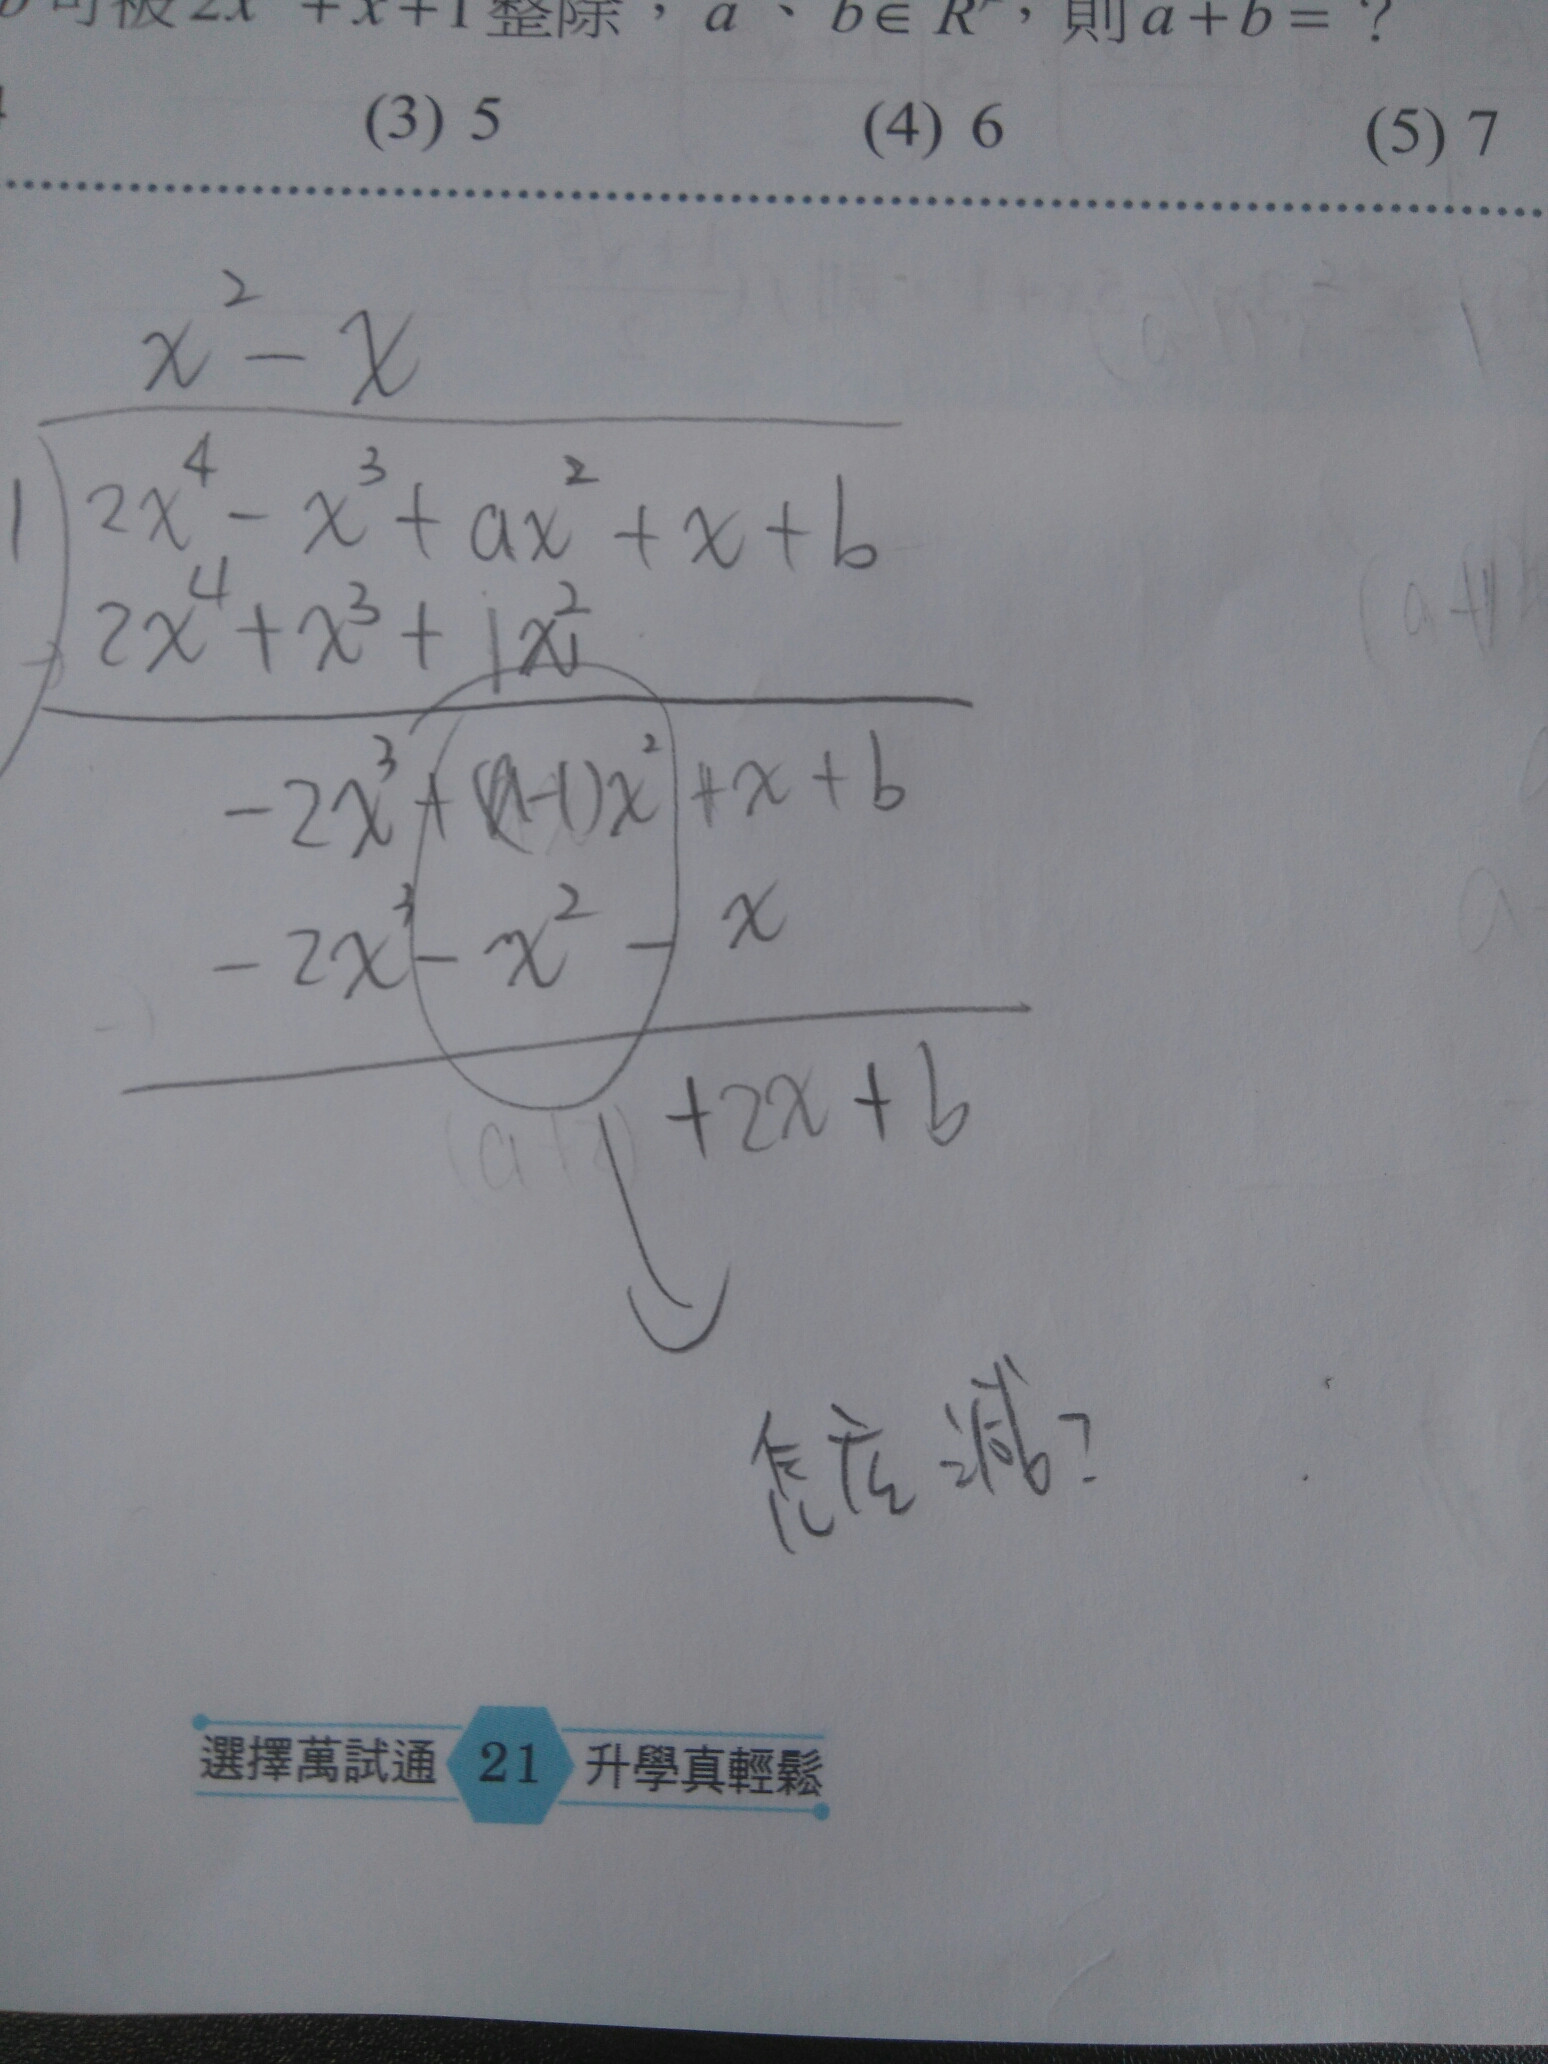 b可被2x²+x+1整除，a、b∈R，則a+b=？
(3) 5 (4) 6 (5) 7
x² - x
1 2x⁴ - x³ + ax² + x + b
2x⁴ + x³ + 1x²
-2x³ + (a-1)x² + x + b
-2x³ - x² - x
+2x + b
怎麼減?
選擇萬試通 21 升學真輕鬆